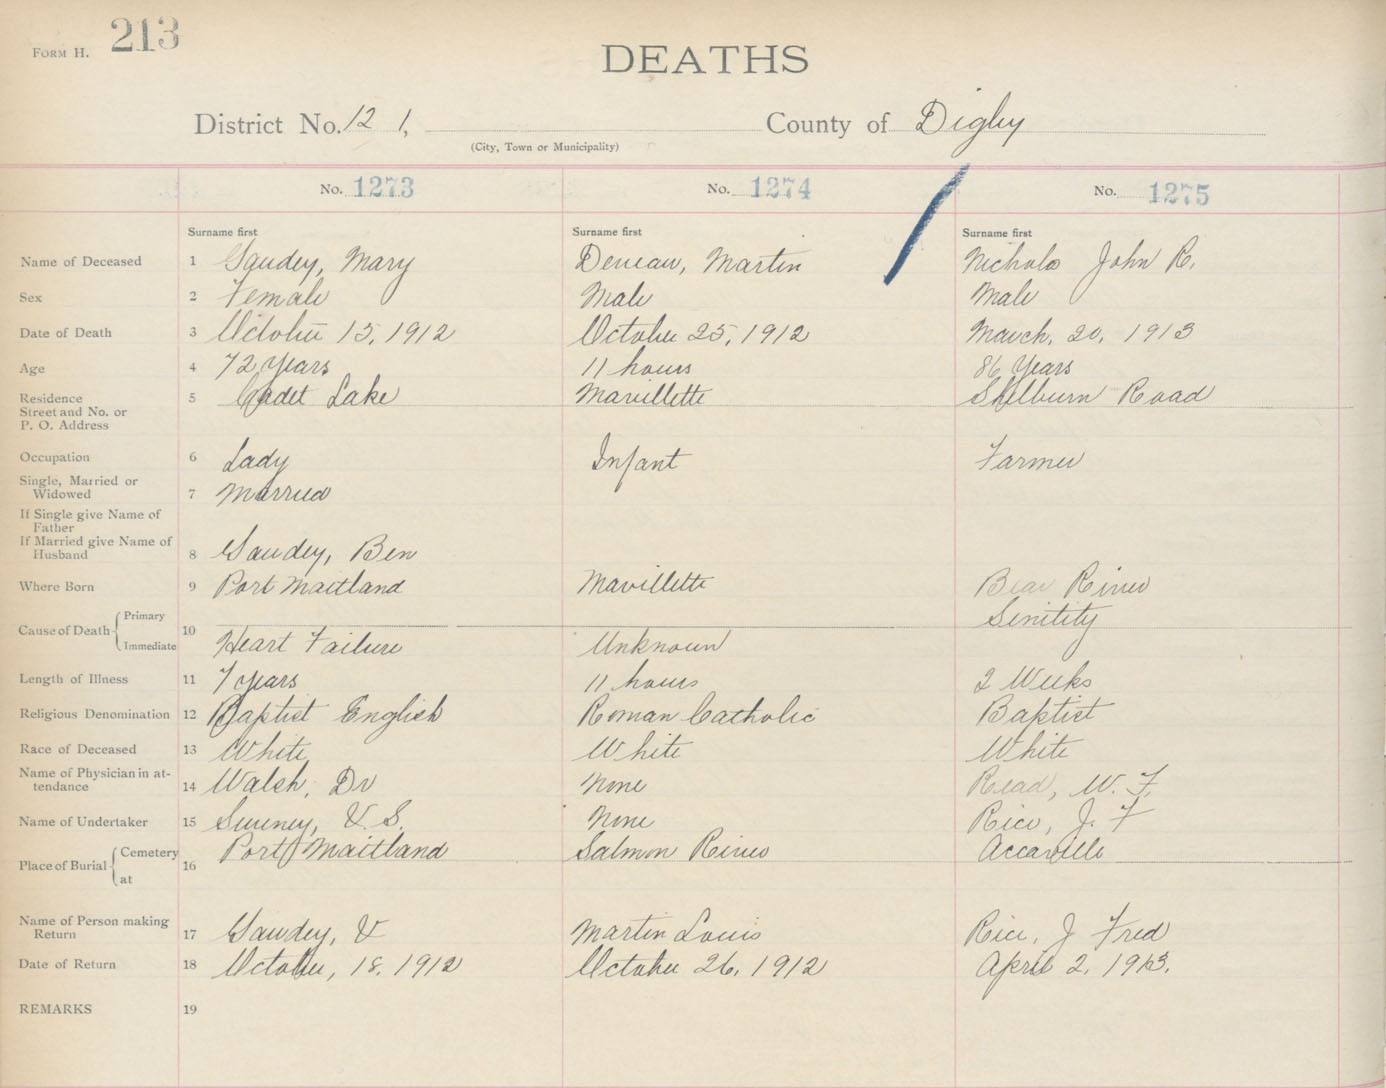 FORM H. 213
DEATHS
District No. 12 1, County of Digby
(City, Town or Municipality)
No. 1273 No. 1274 No. 1275
Surname first Surname first Surname first
Name of Deceased 1 Gaudey, Mary Deveau, Martin Nichols John R.
Sex 2 Female Male Male
Date of Death 3 October 15, 1912 October 25, 1912 March, 20, 1913
Age 4 72 Years 11 hours 86 Years
Residence 5 Lake Mavillette Road
Street and No. or
P. O. Address
Occupation 6 Lady Infant Farmer
Single, Married or
Widowed 7 Married
If Single give Name of
Father
If Married give Name of
Husband 8 Gaudey, Ben
Where Born 9 Port Maitland Mavillette Bear River
Cause of Death Primary 10 Senitity
Immediate Heart Failure Unknown
Length of Illness 11 7 years 11 hours 2 Weeks
Religious Denomination 12 Baptist English Roman Catholic Baptist
Race of Deceased 13 White White White
Name of Physician in at-
tendance 14 Walsh, Dr None Read, W. F.
Name of Undertaker 15 Sweney, V. S. None Rice, J. F
Place of Burial Cemetery 16 Port Maitland Salmon River
at
Name of Person making
Return 17 Gaudey, V Martin Louis Rice, J Fred
Date of Return 18 October, 18, 1912 October 26, 1912 April 2, 1913.
REMARKS 19